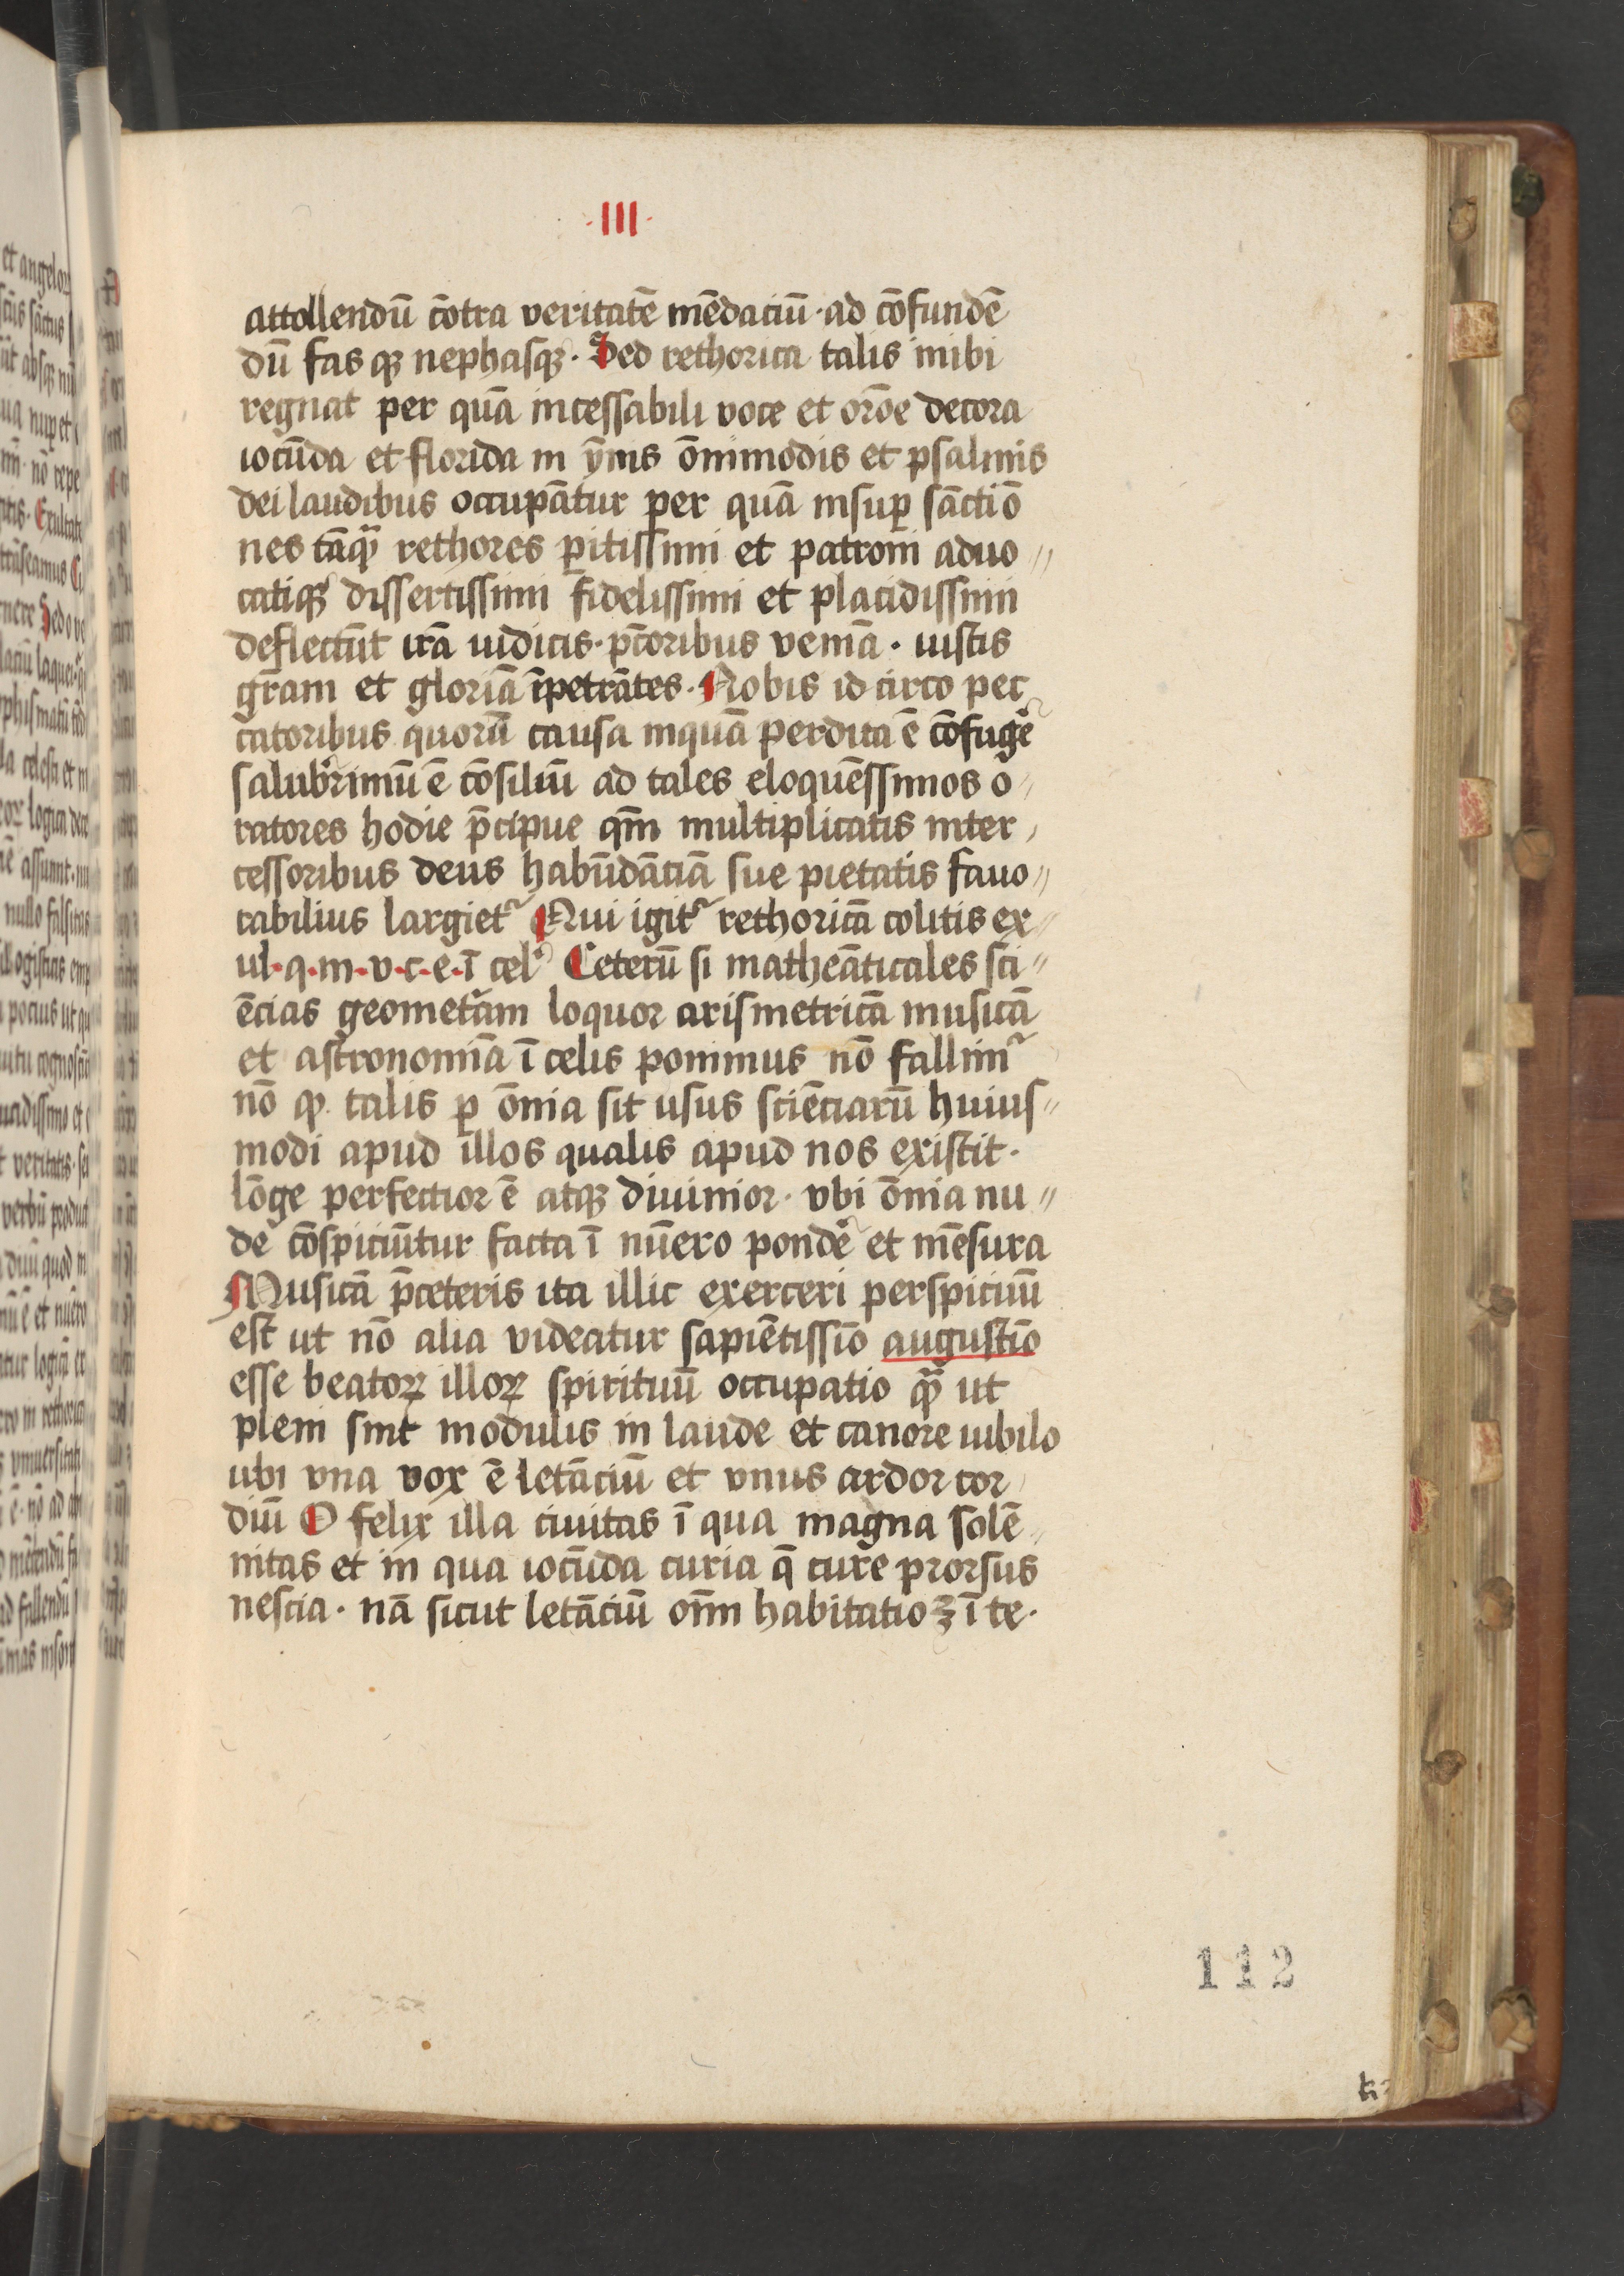 ·III·
attollendū cōtra veritatē mēdaciū · ad cōfundē
dū fas qꝫ nephasqꝫ · Sed rethorica talis inibi
regnat per quā incessabili voce et orōe decora
iocūda et florida in ȳnis ōnimodis et psalmis
dei laudibus occupātur per quā insuꝑ sāctiō
nes tāqꝫ rethores ꝑitissimi et patroni aduo //
catiqꝫ dissertissimi fidelissimi et placidissimi
deflectūt irā iudicis · pc̄toribus veniā · iustis
gr̄am et gloriā īpetrātes · Nobis id circo pec
catoribus quorū causa inquā perdita ē cōfuge᷑
salubrimū ē cōsiliū ad tales eloquēssimos o /
ratores hodie p̄cipue qm̄ multiplicatis inter /
cessoribus deus habūdāciā sue pietatis fauo //
rabilius largiet᷑ Qui igit᷑ rethoricā colitis ex /
ul · q · m · v · c · e · ī cel᷑ Ceterū si matheāticales sci //
ēcias geomet͛am loquor arismetricā musicā
et astronomiā ī celis ponimus nō fallim᷑
nō qꝫ talis ꝑ ōnia sit usus sciēciarū huius //
modi apud illos qualis apud nos existit ·
lōge perfectior ē atqꝫ diuinior · vbi ōnia nu //
de cōspiciūtur facta ī nūero ponde᷑ et mēsura
Musicā p̄ceteris ita illic exerceri perspicuū
est ut nō alia videatur sapiētissīo augustīo
esse beatoꝝ illoꝝ spirituū occupatio qꝫ ut
pleni sint modulis in laude et canore iubilo
ubi vna vox ē letāciū et vnus ardor cor /
diū O felix illa ciuitas ī qua magna solē //
nitas et in qua iocūda curia q̄ cure prorsus
nescia · nā sicut letāciū om̄ habitatio ꝫ ī te ·
112